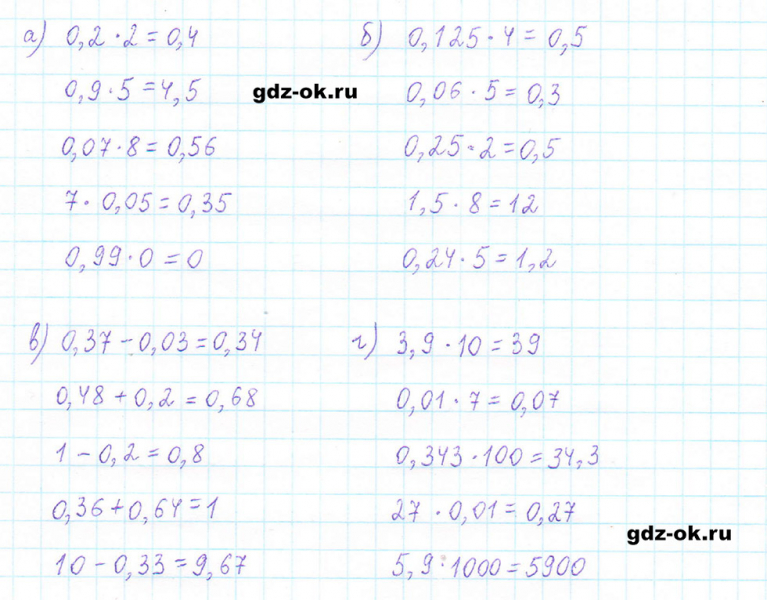 а) 0,2 · 2 = 0,4
0,9 · 5 = 4,5
gdz-ok.ru
0,07 · 8 = 0,56
7 · 0,05 = 0,35
0,99 · 0 = 0
б) 0,125 · 4 = 0,5
0,06 · 5 = 0,3
0,25 · 2 = 0,5
1,5 · 8 = 12
0,24 · 5 = 1,2
в) 0,37 - 0,03 = 0,34
0,48 + 0,2 = 0,68
1 - 0,2 = 0,8
0,36 + 0,64 = 1
10 - 0,33 = 9,67
г) 3,9 · 10 = 39
0,01 · 7 = 0,07
0,343 · 100 = 34,3
27 · 0,01 = 0,27
gdz-ok.ru
5,9 : 1000 = 5900